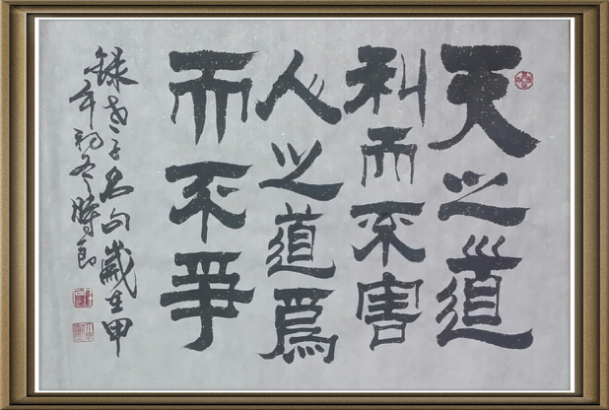 天之道
利而不害
人之道爲
而不爭
錄老子名句歲在甲
午初冬